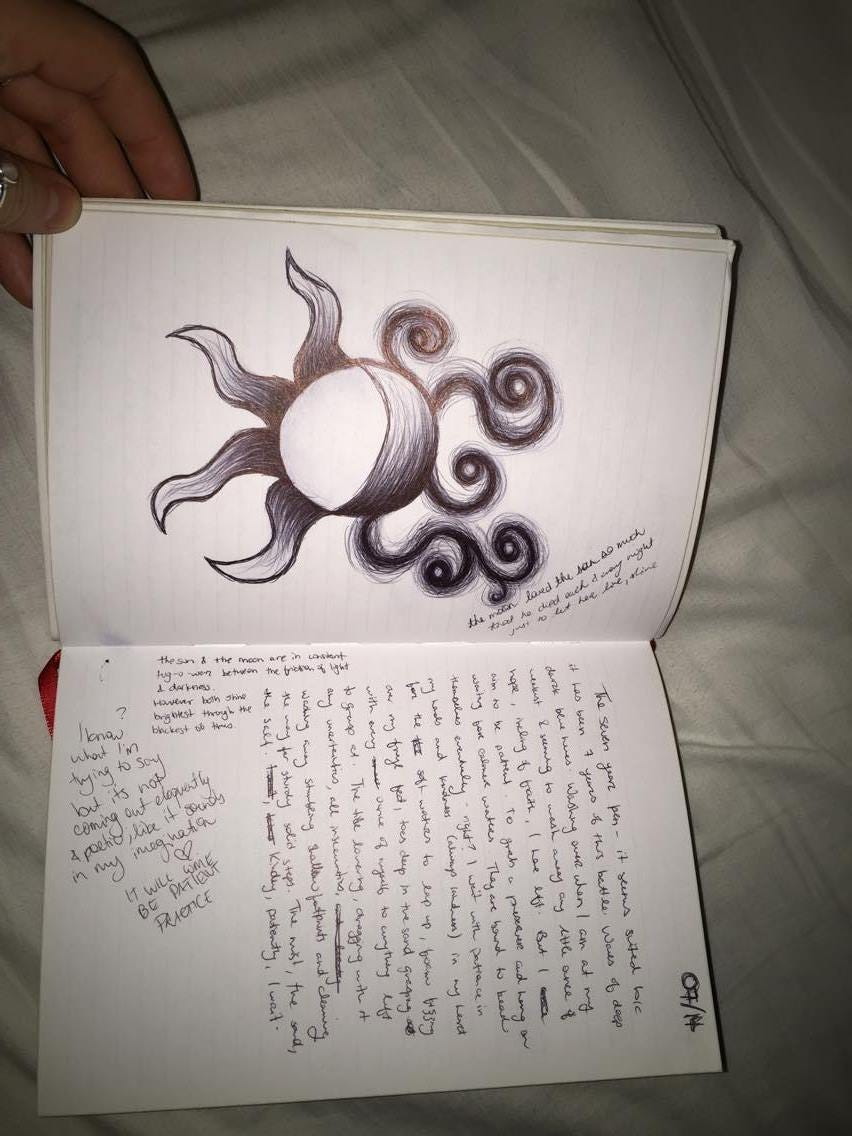 the moon loved the sun so much
that he died each & every night
just to let her live, shine
the sun & the moon are in constant
tug-o-war between the friction of light
& darkness.
However both shine
brightest through the
blackest of times.
?
I know
what I'm
trying to say
but its not
coming out eloquently
& poetic, like it sounds
in my imagination
IT WILL COME
BE PATIENT
PRACTICE
07/14
The seven year pen - it seems suited
it has been 7 years of this battle. Waves of deep
dark blue hues. Washing over when I am at my
weakest & seeming to wash away any little ounce of
hope, inkling of faith, I have left. But I
aim to be patient. To grab a and hang on
waiting for calmer waters. They are bound to
themselves eventually - right? I wait with patience in
my hands and kindness (always kindness) in my heart
for the soft waters to lap up, foam fizzing
over my feet, toes deep in the sand grasping
with every ounce of myself to anything left
to grasp at. The tide lowering, dragging with it
any uncertainties, all insecurities,
washing away stumbling shallow footprints and clearing
the way for sturdy solid steps. The mist, the sand,
the salt. Kindly, patiently, I wait -